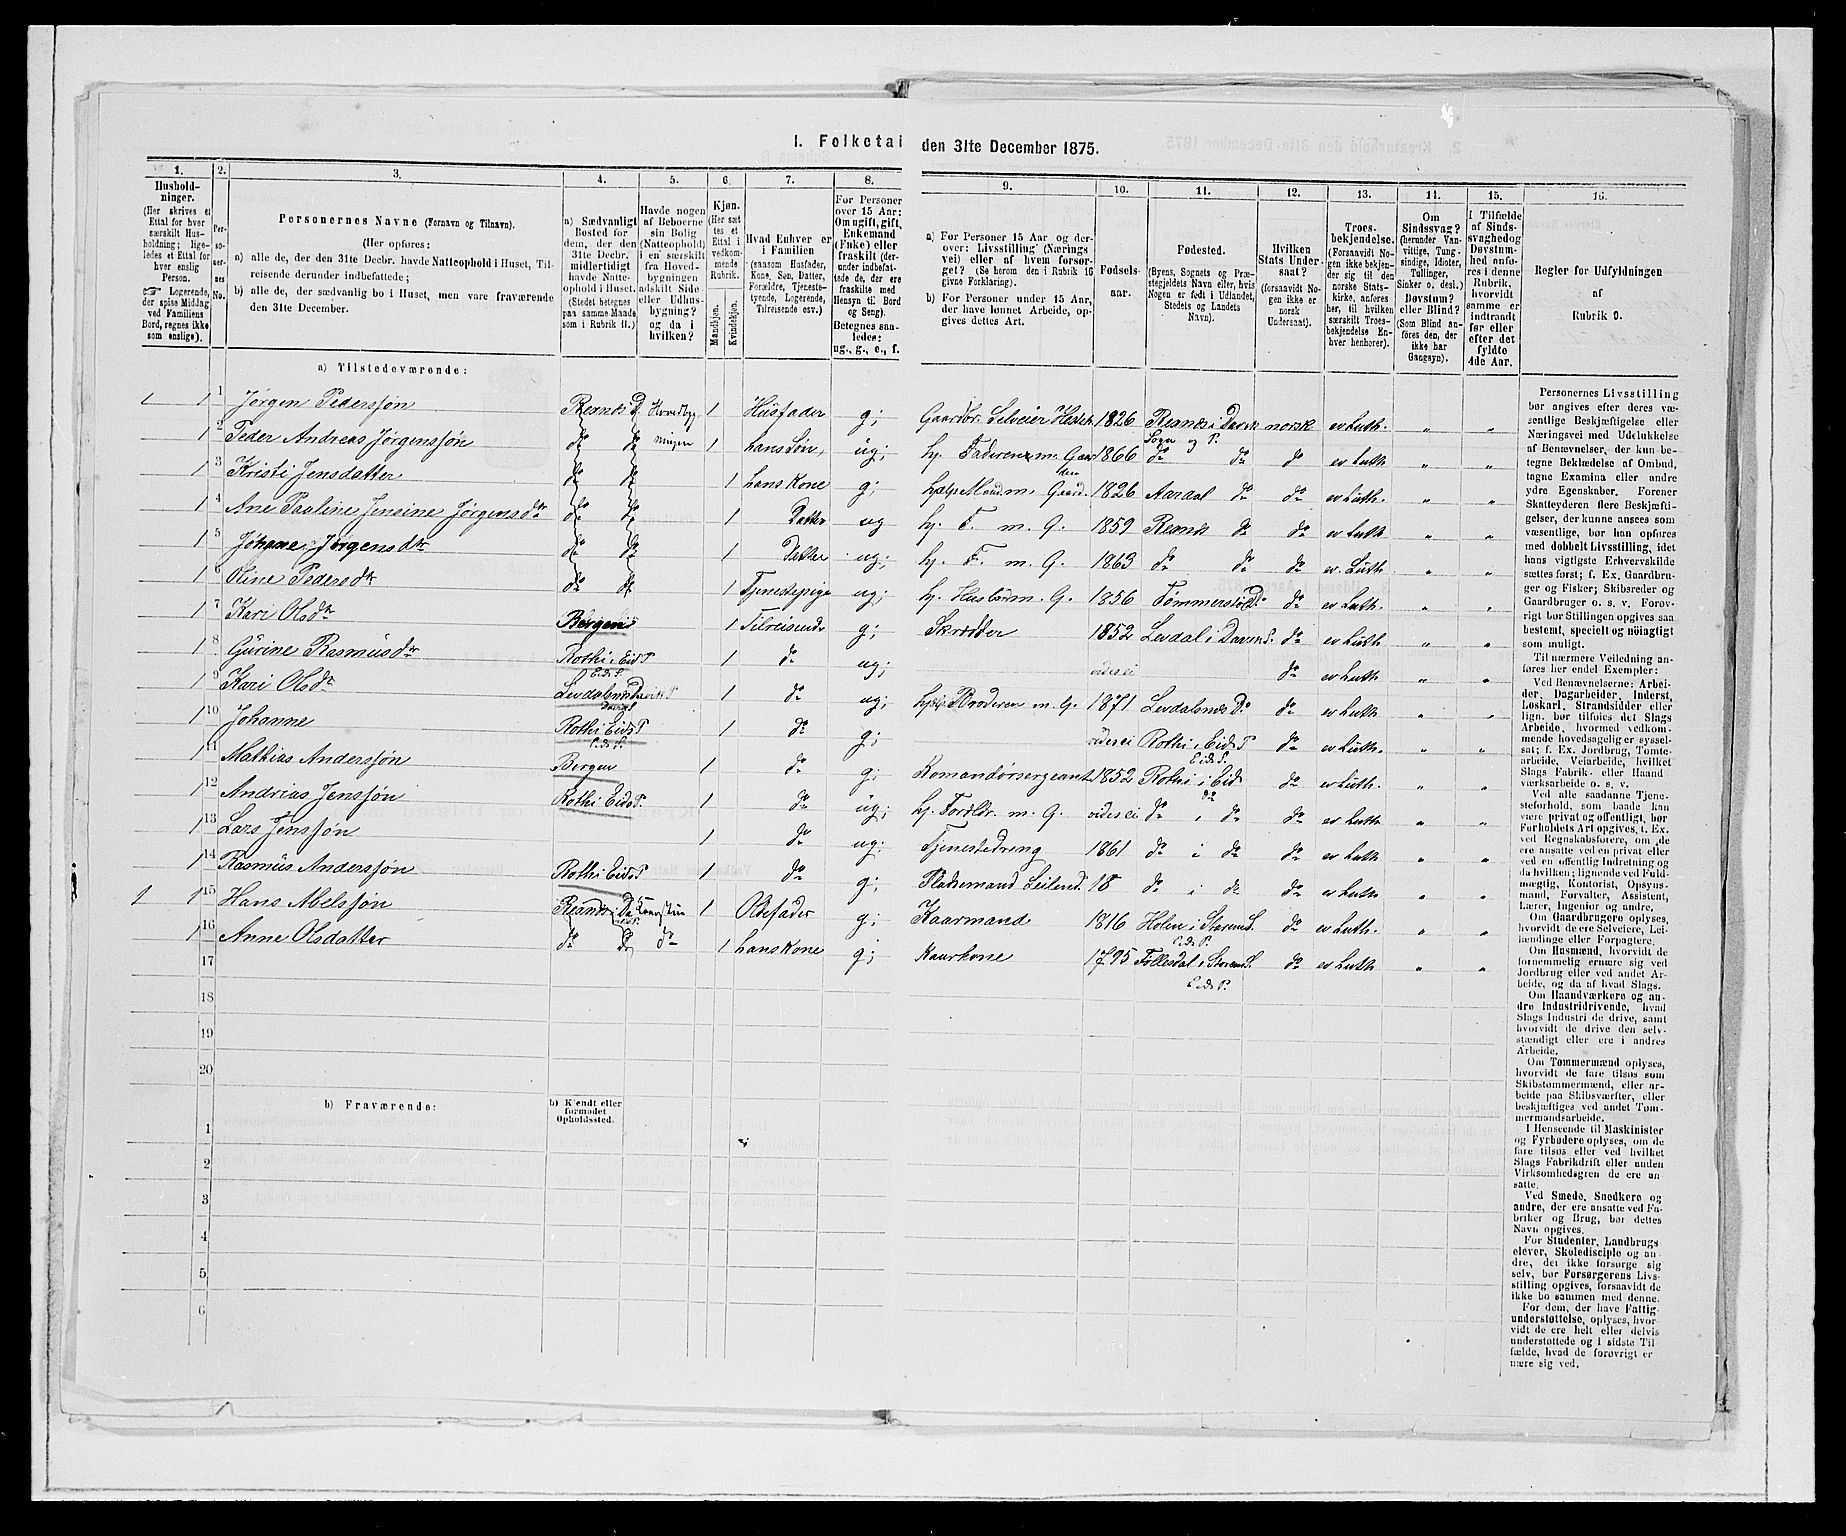 I. Folketal den 31te December 1875.
1. 2. 3. 4. 5. 6. 7. 8. 9. 10. 11. 12. 13. 14. 15. 16.
Hushold-
ninger.
(Her skrives et
Ettal for hver
særskilt Hus-
holdning; lige-
ledes et Ettal for
hver enslig
Person.
Logerende,
der spise Middag
ved Familiens
Bord, regnes ikke
som enslige).
Per-
so-
ner-
nes
No.
Personernes Navne (Fornavn og Tilnavn).
(Her opføres:
a) alle de, der den 31te Decbr. havde Natteophold i Huset, Til-
reisende derunder indbefattede;
b) alle de, der sædvanlig bo i Huset, men vare fraværende
den 31te December.
a) Sædvanligt
Bosted for
dem, der den
31te Decbr.
midlertidigt
havde Natte-
ophold i Huset.
(Stedet betegnes
paa samme Maade
som i Rubrik 11.)
Havde nogen
af Beboerne
sin Bolig
(Natteophold)
i en særskilt
fra Hoved-
bygningen
adskilt Side
eller Udhus-
bygning?
og da i
hvilken?
Kjøn.
(Her sæt-
tes et
Ettal i
vedkom-
mende
Rubrik.
Mandkjøn.
Kvindekjøn.
Hvad Enhver er
i Familien
(saasom Husfader,
Kone, Søn, Datter,
Forældre, Tjeneste-
tyende, Logerende,
Tilreisende osv.)
For Personer
over 15 Aar:
Om ugift, gift,
Enkemand
(Enke) eller
fraskilt (der-
under indbefat-
tede de, der ere
fraskilte med
Hensyn til Bord
og Seng).
Betegnes saa-
ledes:
ug., g., e., f.
a) For Personer 15 Aar og der-
over: Livsstilling (Nærings
vei) eller af hvem forsør-
get? (Se herom den i Rubrik 16
givne Forklaring).
b) For Personer under 15 Aar,
der have lønnet Arbeide, op-
gives dettes Art.
Fødsels-
aar.
Fødested.
(Byens, Sognets og Præ-
stegjeldets Navn eller, hvis
Nogen er født i Udlandet,
Stedets og Landets
Navn).
Hvilken
Stats Under-
saat?
(forsaavidt No-
gen ikke er
norsk
Undersaat).
Troes-
bekjendelse.
(Forsaavidt No-
gen ikke bekjen-
der sig til den
norske Stats-
kirke, anføres
her, til hvilken
særskilt Troes-
bekjendelse En-
hver henhører).
Om
Sindssvag?
(herunder Van-
vittige, Tung-
sindige, Idioter,
Tullinger,
Sinker o. desl.)
Døvstum?
eller Blind?
(Som Blind an-
føres den, der
ikke har
Gangsyn).
I Tilfælde
af Sinds-
svaghed og
Døvstum-
hed anfø-
res i denne
Rubrik,
hvorvidt
samme er
indtraadt
før eller
efter det
fyldte
4de Aar.
Regler for Udfyldningen
af
Rubrik 9.
a) Tilstedeværende:
1 1 1 Jørgen Pedersøn Reanes D. Hovedbyg 1 Husfader g; Gaardbr. Selveier 1826 Reanes i Davik norsk ev Luth. „ „
Sogn og P.
1 2 Peder Andreas Jørgenssøn do do ningen 1 hans Søn, ug; hj. Faderen m. Gaard 1866 do do do ev Luth „ „
1 3 Kristi Jensdatter do do 1 hans Kone g; hjælp Mand m. Gaard. 1826 Aardal do do ev Luth. „ „
1 4 Ane Pauline Jensine Jørgensdtr do do 1 Datter ug hj. F. m. G. 1859 Reanes do do ev Luth „ „
1 5 Johane Jørgensdtr do do 1 Datter ug; hj. F. m. G. 1863 do do do ev. Luth „ „
1 6 Oline Pedersdtr do do 1 Tjenestepige ug; hj. m. G. 1856 D. do ev Luth. „ „
1 7 Kari Olsdtr Bergen 1 Tilreisende g; Skrædder 1852 Levdal i Davik S. do ev Luth. „ „
1 8 Gurine Rasmusdtr Rothi i Eids P 1 do ug; vides ei do ev Luth „ „
Eids S.
1 9 Kari Olsdtr Levdalsnes 1 do ug; hjelp Broderen m. G. 1871 Levdalsnes D. do ev Luth. „ „
1 10 Johanne Rothi Eids P 1 do g; vides ei Rothi i Eids P do ev Luth. „ „
Eids S. Eids S.
1 11 Mathias Anderssøn Bergen 1 do g; Komandørsergeant 1852 Rothi i Eid do ev Luth. „ „
1 12 Andreas Jenssøn Rothi Eids P. 1 do ug; hj. Foreldr. m. G. vides ei do i do do ev Luth „ „
1 13 Lars Jenssøn 1 do ug; Tjenestedreng 1861 do i do do ev Luth „ „
1 14 Rasmus Anderssøn Rothi Eids P 1 do g; Pladsemand 18 do i do do ev Luth. „ „
1 1 15 Hans Abelssøn Reanes i Da 1 g; Kaarmand 1816 Holen i S. do ev Luth. „ „
Eids P.
1 16 Anne Olsdatter do do do 1 hans Kone g; Kaarkone 1795 Follesdal i S. do ev Luth „ „
Eids P.
17
18
19
20
b) Fraværende:
b) Kjendt eller
formodet
Opholdssted.
1
2
3
4
5
6
Personernes Livsstilling
bør angives efter deres væ-
sentlige Beskjæftigelse eller
Næringsvei med Udelukkelse
af Benævnelser, der kun be-
tegne Beklædelse af Ombud,
tagne Examina eller andre
ydre Egenskaber. Forener
Skatteyderen flere Beskjæfti-
gelser, der kunne ansees som
væsentlige, bør han opføres
med dobbelt Livsstilling, idet
hans vigtigste Erhvervskilde
sættes først; f. Ex. Gaardbru-
ger og Fisker; Skibsreder og
Gaardbruger o. s. v. Forøv-
rigt bør Stillingen opgives saa
bestemt, specielt og nöiagtigt
som muligt.
Til nærmere Veiledning an-
føres her endel Exempler:
Ved Benævnelserne: Arbei-
der, Dagarbeider, Inderst,
Løskarl, Strandsidder eller
lign. bør tilføies det Slags
Arbeide, hvormed vedkom-
mende hovedsagelig er syssel-
sat; f. Ex. Jordbrug, Tomte-
arbeide, Veiarbeide, hvilket
Slags Fabrik- eller Haand
værksarbeide o. s. v.
Ved alle saadanne Tjene-
steforhold, som baade kan
være privat og offentlig, bør
Forholdets Art opgives, t. Ex.
ved Regnskabsførere, om de
ere ansatte ved en privat eller
ved en offentlig Indretning og
da hvilken; lignende ved Fuld-
mægtig, Kontorist, Opsyns-
mand, Forvalter, Assistent,
Lærer, Ingeniør og andre.
Om Gaardbrugere oplyses,
hvorvidt de ere Selveiere, Lei-
lændinge eller Forpagtere.
Om Husmænd, hvorvidt de
fornemmelig ernære sig ved
Jordbrug eller ved andet Ar-
beide, og da af hvad Slags.
Om Haandværkere og an-
dre Industridrivende, hvad
Slags Industri de drive, samt
hvorvidt de drive den selv-
stændigt eller ere i andres
Arbeide.
Om Tømmermænd oplyses,
hvorvidt de fare tilsøs som
Skibstømmermænd, eller ar-
beide paa Skibsværfter, eller
beskjæftiges ved andet Tøm-
mermandsarbeide.
I Henseende til Maskinister
og Fyrbødere oplyses, om de
fare tilsøs eller ved hvilket
Slags Fabrikdrift eller anden
Virksomhedsgren de ere an
satte.
Ved Smede, Snedkere og
andre, der ere ansatte ved Fa-
briker og Brug, bør dettes
Navn opgives.
For Studenter, Landbrugs
elever, Skoledisciple og an-
dre, der ikke forsørge sig
selv, bør Forsørgerens Livs-
stilling opgives, forsaavidt de
ikke bo sammen med denne.
For dem, der have Fattig-
understøttelse, oplyses, hvor-
vidt de ere helt eller delvis
understøttede og i sidste Til-
fælde, hvad de forøvrigt er
nære sig ved.